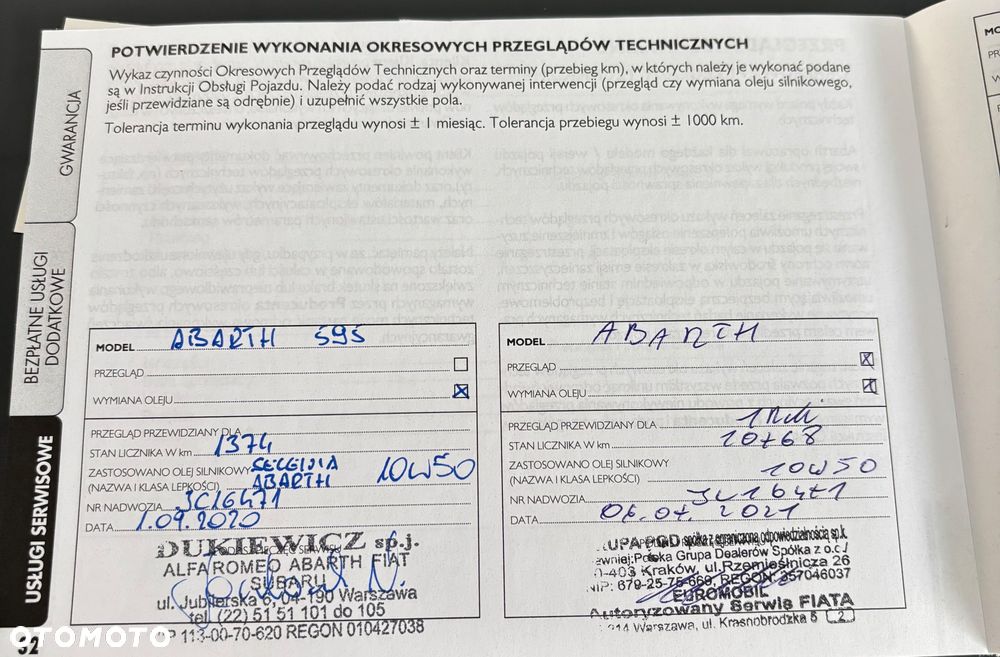 POTWIERDZENIE WYKONANIA OKRESOWYCH PRZEGLĄDÓW TECHNICZNYCH
Wykaz czynności Okresowych Przeglądów Technicznych oraz terminy (przebieg km), w których należy je wykonać podane
są w Instrukcji Obsługi Pojazdu. Należy podać rodzaj wykonywanej interwencji (przegląd czy wymiana oleju silnikowego,
jeśli przewidziane są odrębnie) i uzupełnić wszystkie pola.
Tolerancja terminu wykonania przeglądu wynosi ± 1 miesiąc. Tolerancja przebiegu wynosi ± 1000 km.
GWARANCJA
BEZPŁATNE USŁUGI
DODATKOWE
USŁUGI SERWISOWE
MODEL ABARTH 595
PRZEGLĄD
WYMIANA OLEJU
PRZEGLĄD PRZEWIDZIANY DLA
STAN LICZNIKA W km 1374
ZASTOSOWANO OLEJ SILNIKOWY SELENIA
(NAZWA I KLASA LEPKOŚCI) ABARTH 10W50
NR NADWOZIA JC16471
DATA 1.09.2020
DUKIEWICZ sp.j.
ALFA ROMEO ABARTH FIAT
SUBARU
ul. Jubilerska 6, 04-190 Warszawa
tel. (22) 51 51 101 do 105
NIP 113-00-70-620 REGON 010427038
MODEL ABARTH
PRZEGLĄD
WYMIANA OLEJU
PRZEGLĄD PRZEWIDZIANY DLA
STAN LICZNIKA W km 10768
ZASTOSOWANO OLEJ SILNIKOWY
(NAZWA I KLASA LEPKOŚCI) 10W50
NR NADWOZIA JC16471
DATA 06.07.2021
UPA PGD spółka z ograniczoną odpowiedzialnością sp.k.
Polska Grupa Dealerów Spółka z o.o./
-403 Kraków, ul. Rzemieślnicza 26
NIP: 679-25-75-669, REGON: 357046037
EUROMOBIL
Autoryzowany Serwis FIATA
Warszawa, ul. Krasnobrodzka 5 2
OTOMOTO
32